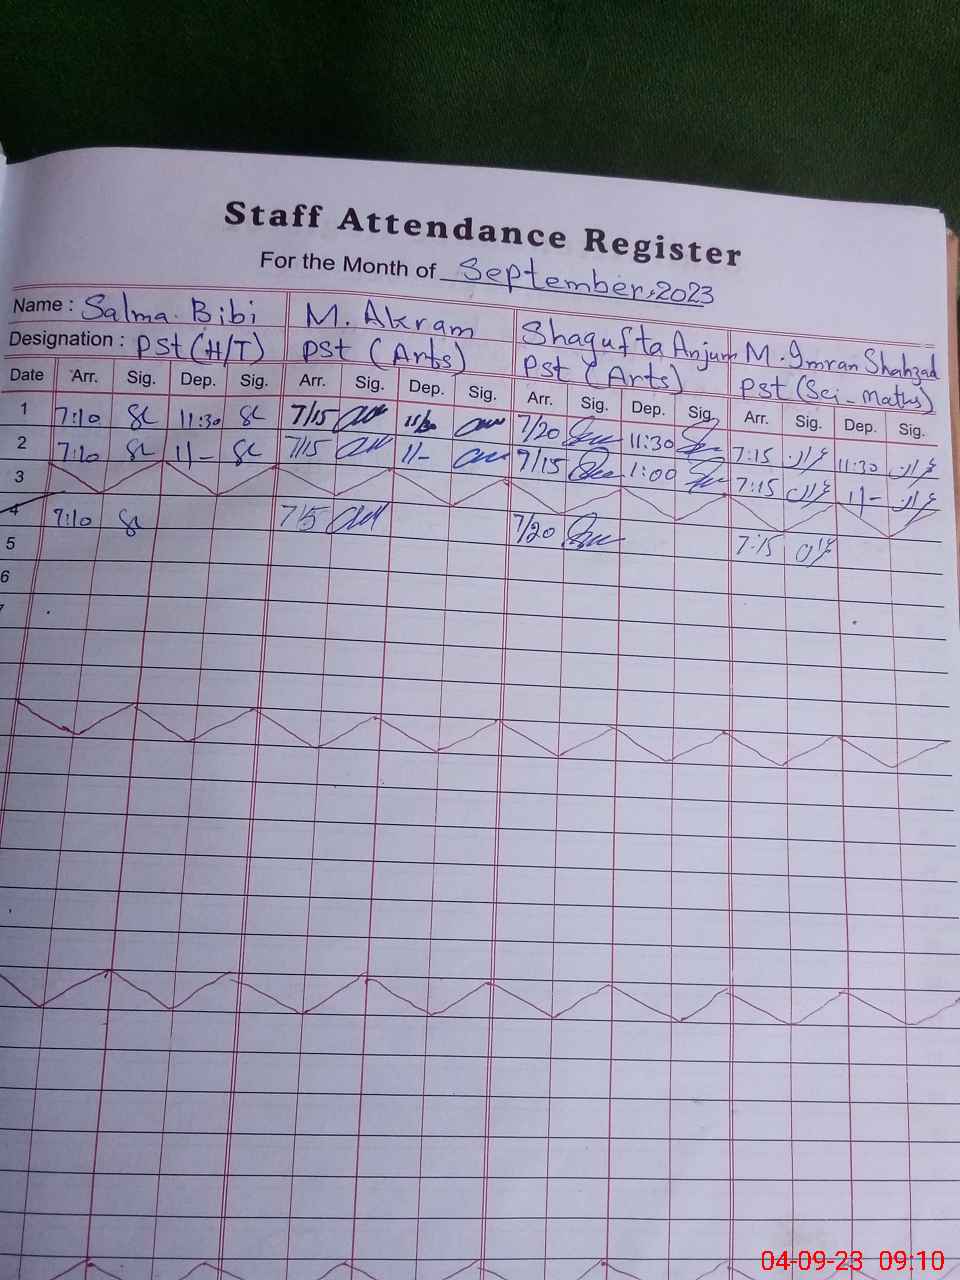 Staff Attendance Register
For the Month of September,2023
Name : Salma Bibi M. Akram Shagufta Anjum M. Imran Shahzad
Designation : PST (H/T) PST (Arts) PST (Arts) PST (Sci-Maths)
Date Arr. Sig. Dep. Sig. Arr. Sig. Dep. Sig. Arr. Sig. Dep. Sig. Arr. Sig. Dep. Sig.
1 7:10 11:30 7/15 11/30 7/20 11:30 7:15 11:30
2 7:10 1/- 7/15 1/- 7/15 1:00 7:15 1/-
3
4 7:10 7/15 7/20 7:15
5
6
04-09-23 09:10